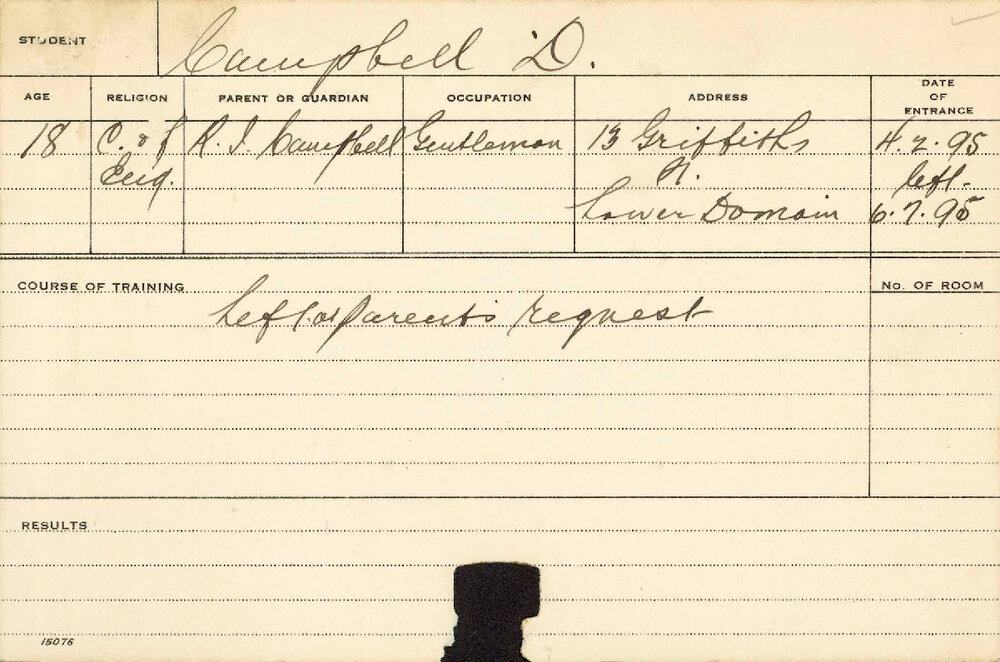 STUDENT Campbell D.
AGE RELIGION PARENT OR GUARDIAN OCCUPATION ADDRESS DATE OF ENTRANCE
18 C. of R. J. Campbell Gentleman 13 Griffiths 4.2.95
Eng. left
Lower Domain 6.7.95
COURSE OF TRAINING No. OF ROOM
Left at parents request
RESULTS
15076